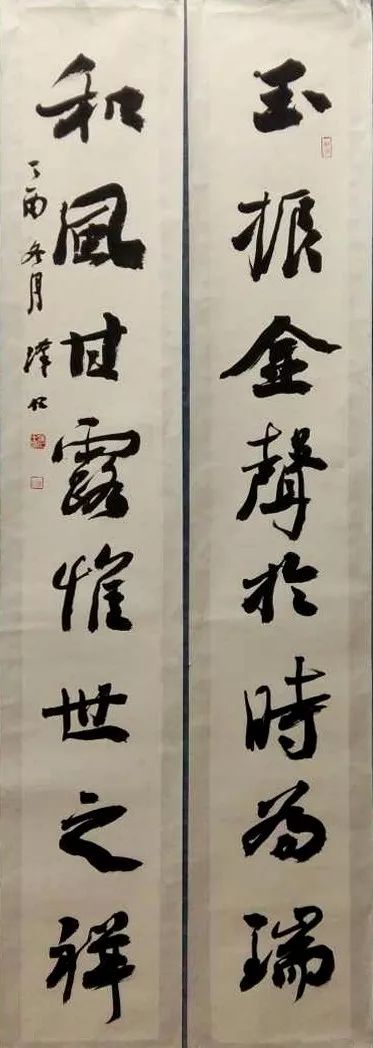 玉振金聲於時為瑞
和風甘露惟世之祥
丁酉冬月